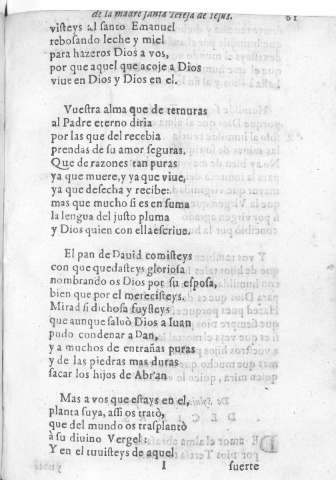 de la madre santa Teresa de Iesus. 61
visteys al santo Emanuel
rebosando leche y miel
para hazeros Dios a vos,
por que aquel que acoje a Dios
viue en Dios y Dios en el.
Vuestra alma que de ternuras
al Padre eterno diria
por las que del recebia
prendas de su amor seguras.
Que de razones tan puras
ya que muere, y ya que viue,
ya que desecha y recibe:
mas que mucho si es en suma
la lengua del justo pluma
y Dios quien con ella escriue.
El pan de Dauid comisteys
con que quedasteys gloriosa
nombrando os Dios por su esposa,
bien que por el merecisteys.
Mirad si dichosa fuysteys
que aunque saluò Dios a Iuan
pudo condenar a Dan,
y a muchos de entrañas puras
y de las piedras mas duras
sacar los hijos de Abr'an
Mas a vos que estays en el,
planta suya, assi os tratò,
que del mundo os trasplantò
à su diuino Vergel:
Y en el tuuisteys de aquel
I suerte